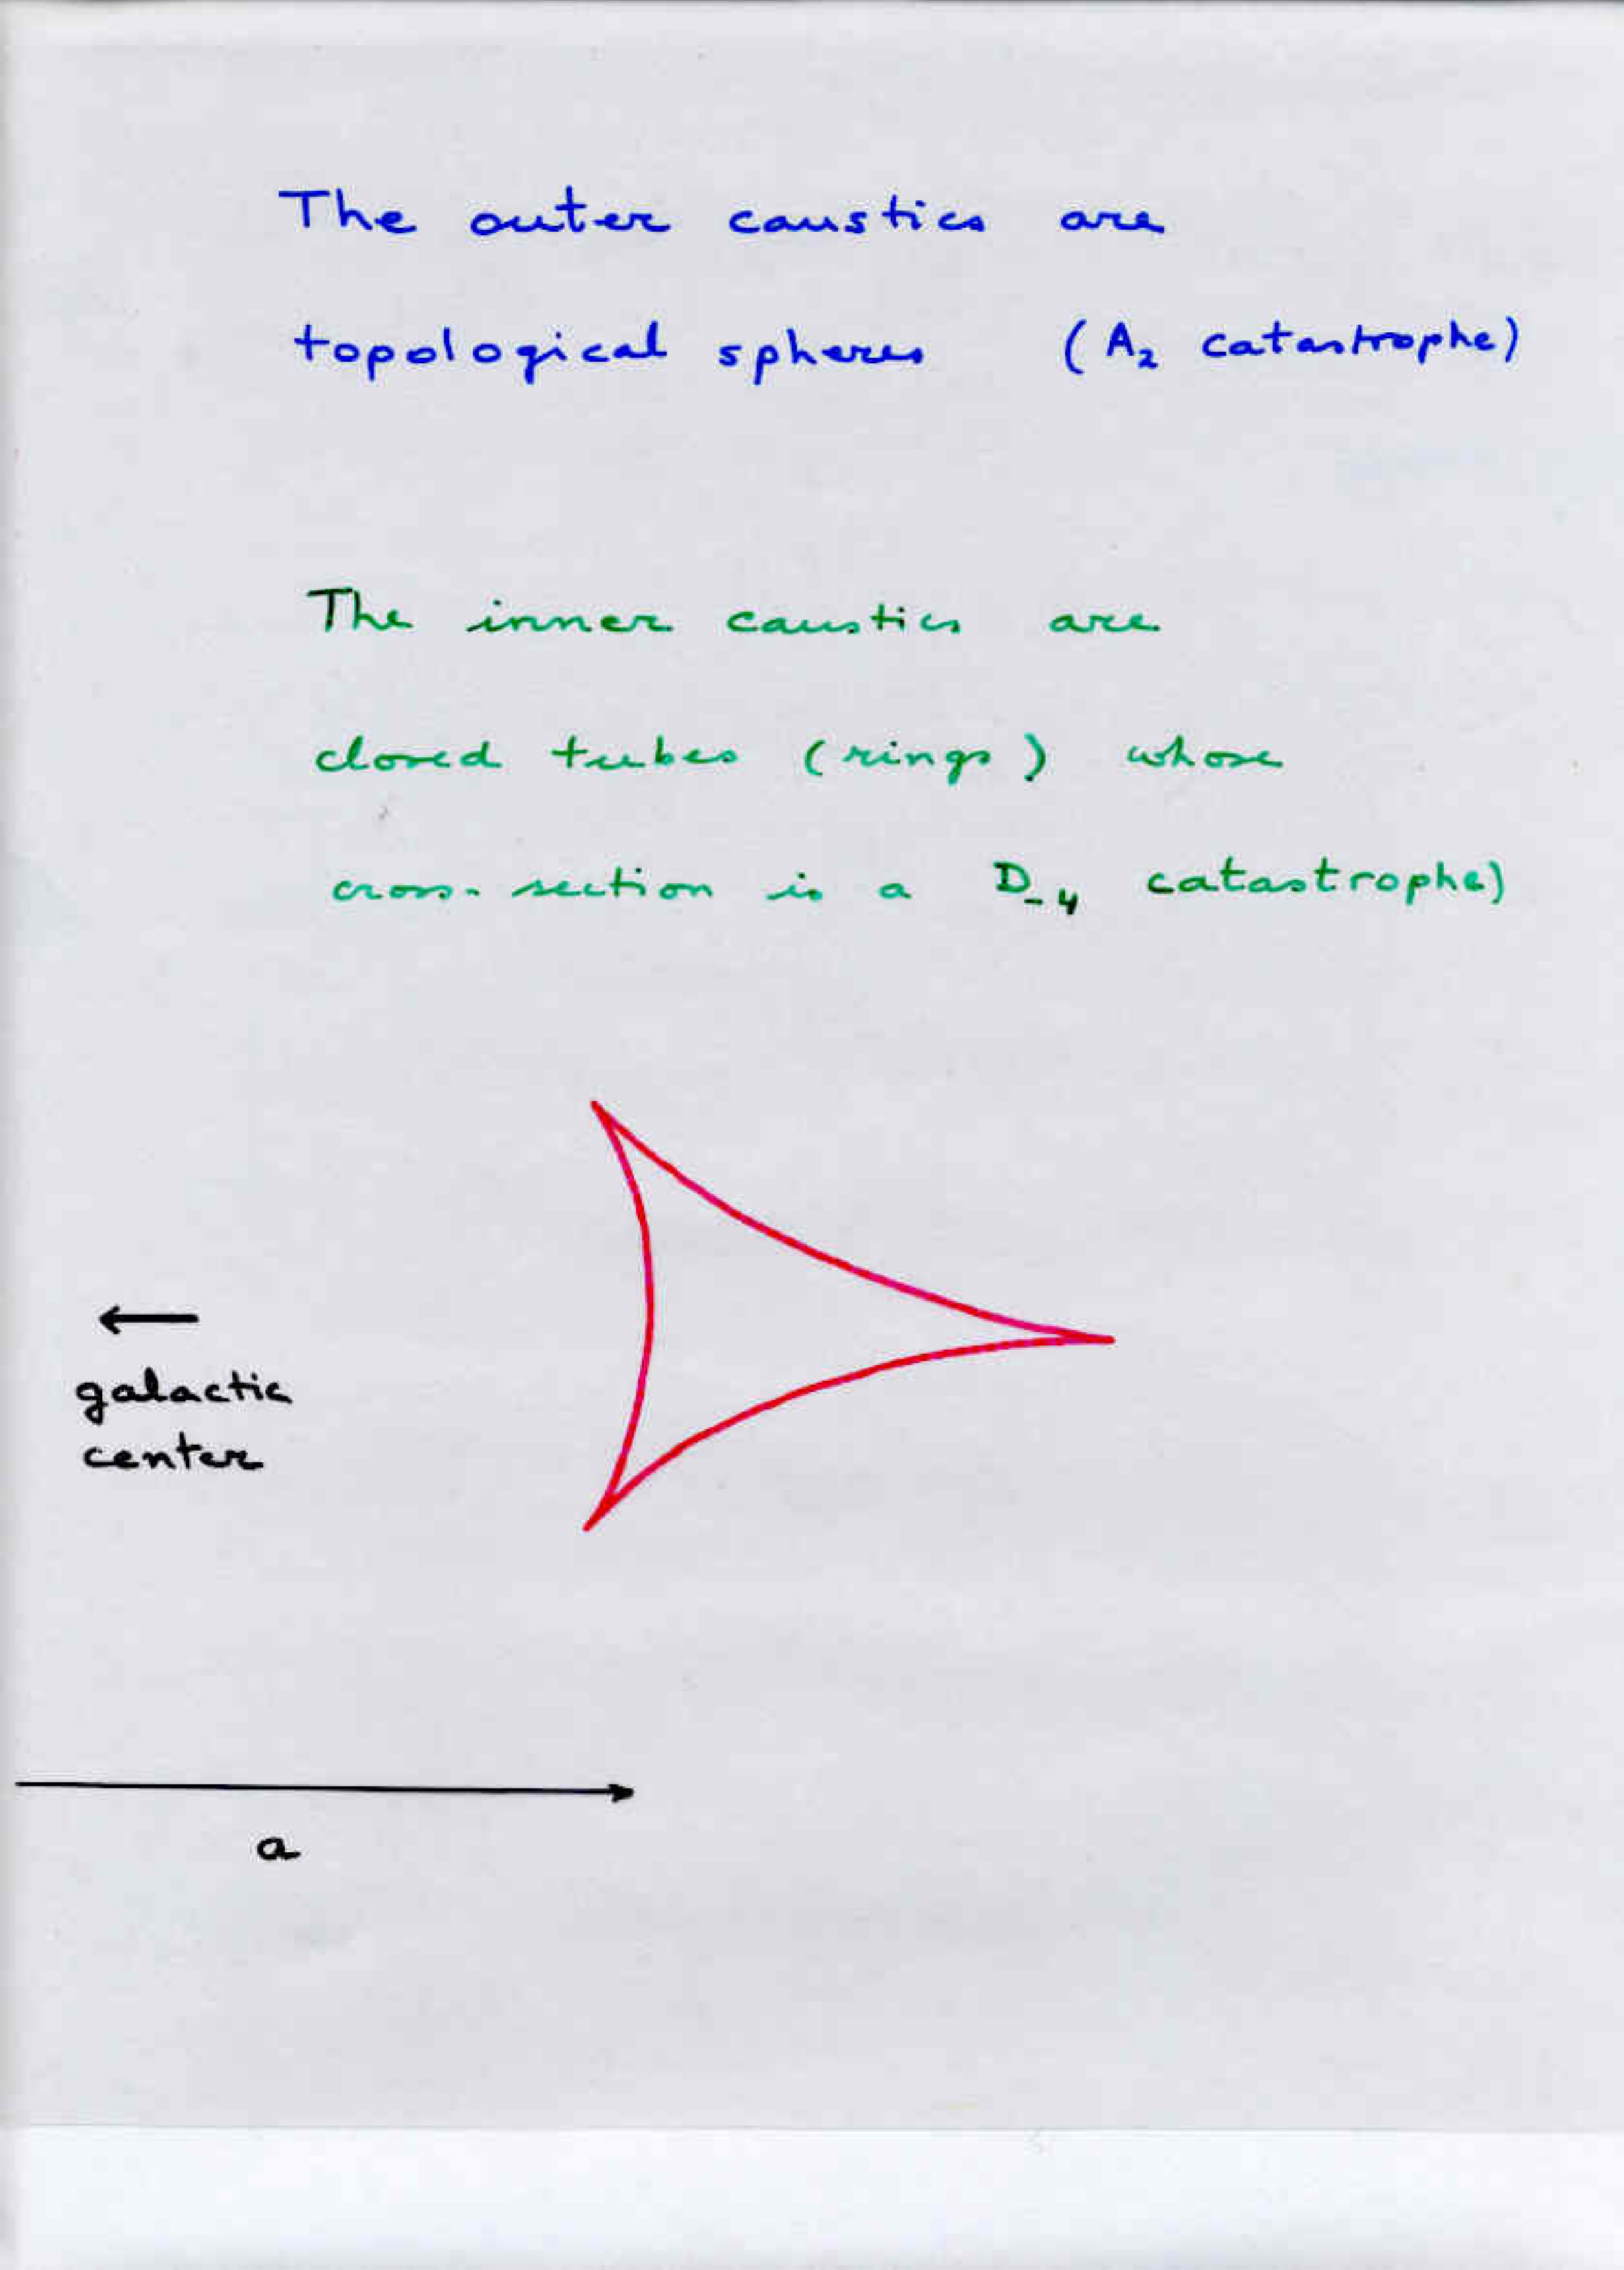 The outer caustics are
topological spheres (A₂ catastrophe)
The inner caustics are
closed tubes (rings) whose
cross-section is a D₋₄ catastrophe)
←
galactic
center
a